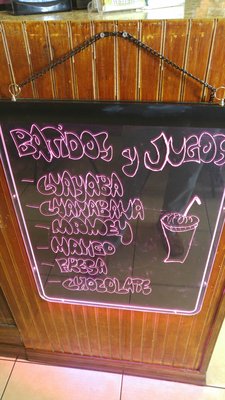 BATIDOS y JUGOS
- GUAYABA
- GUANABANA
- MAMEY
- MANGO
- FRESA
- CHOCOLATE